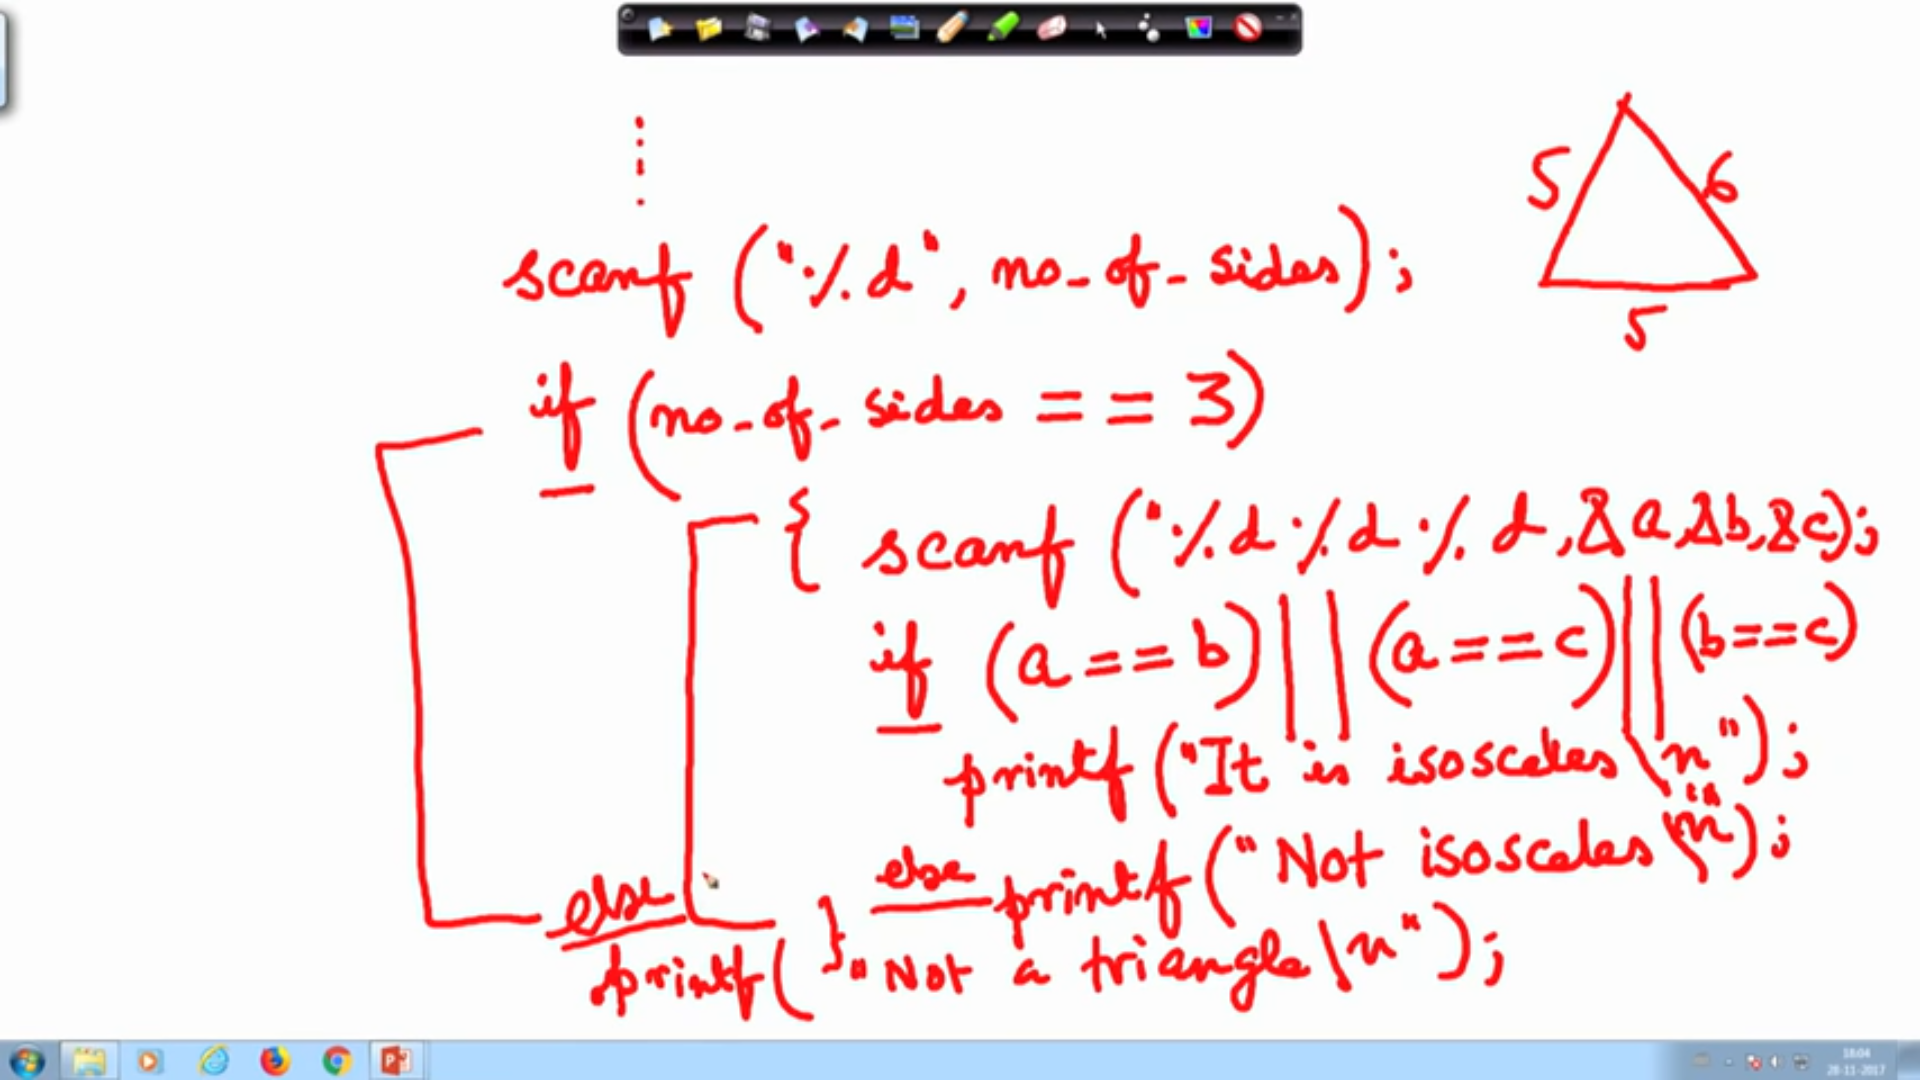 scanf ("%d", no_of_sides);
if (no_of_sides == 3)
{ scanf ("%d%d%d, &a,&b,&c);
if (a == b) || (a == c) || (b==c)
printf ("It is isosceles \n");
else printf ("Not isosceles \n");
}
else
printf ( "Not a triangle \n");
5
6
5
18:04
28-11-2017